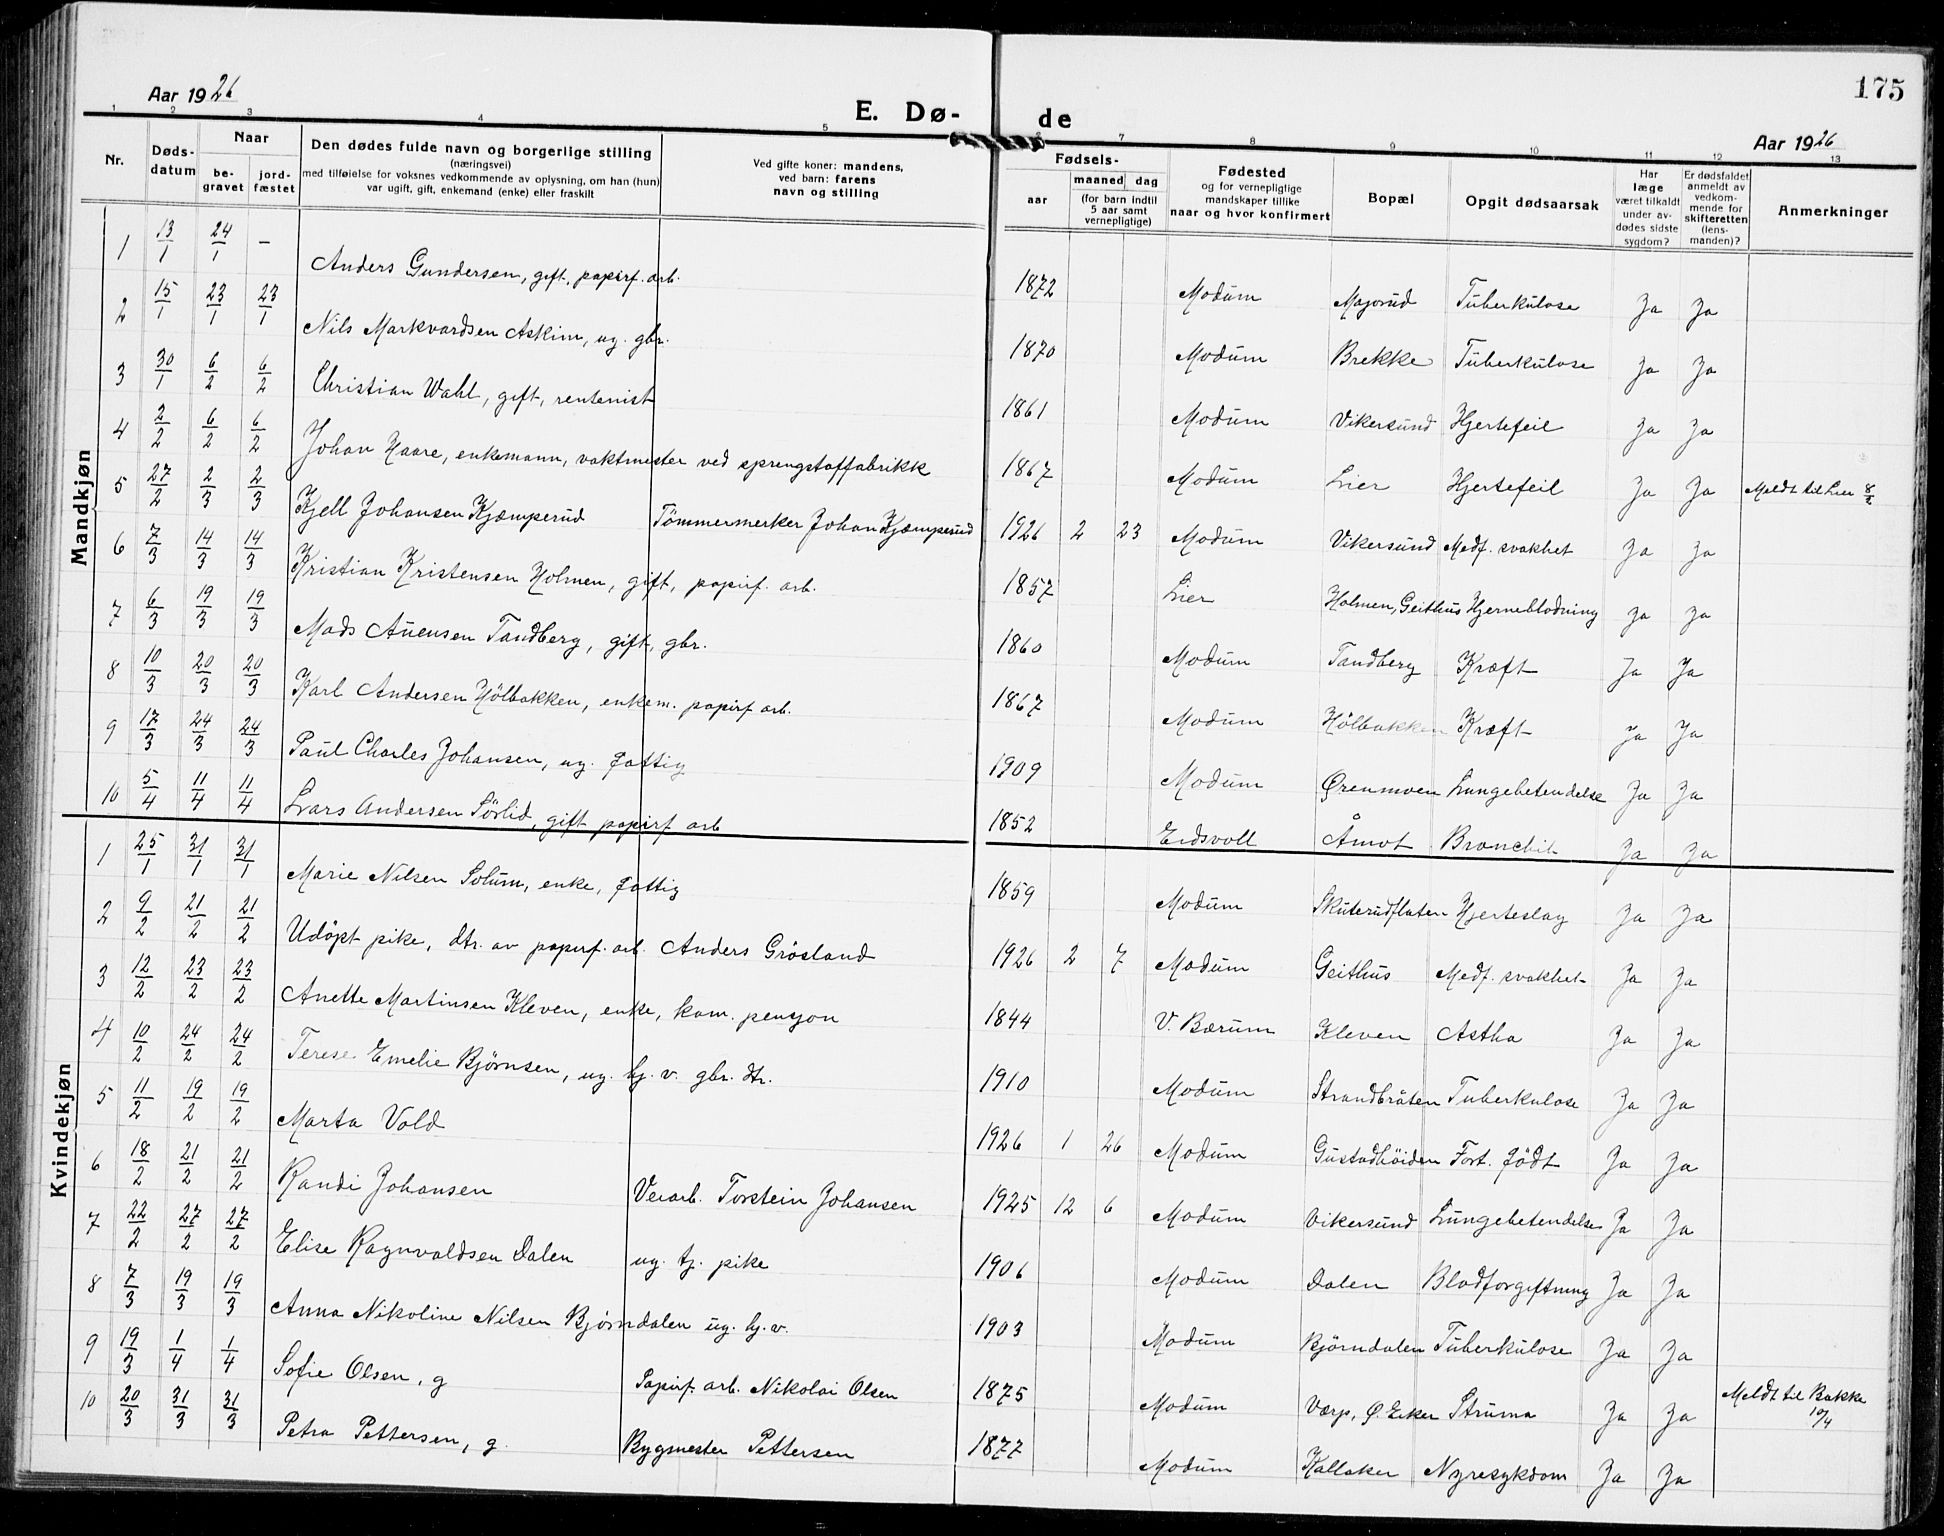 Aar 1926
E. Dø-
de
175
Aar 1926
1 2 3 4 5 6 7 8 9 10 11 12 13
Nr. Døds-datum Naar be-gravet jord-fæstet Den dødes fulde navn og borgerlige stilling (næringsvei) med tilføielse for voksnes vedkommende av oplysning, om han (hun) var ugift, gift, enkemand (enke) eller fraskilt Ved gifte koner: mandens, ved barn: farens navn og stilling Fødsels- aar maaned dag (for barn indtil 5 aar samt vernepligtige) Fødested og for vernepligtige mandskaper tillike naar og hvor konfirmert Bopæl Opgit dødsaarsak Har læge været tilkaldt under av-dødes sidste sygdom? Er dødsfaldet anmeldt av vedkom-mende for skifteretten (lens-manden)? Anmerkninger
Mandkjøn
1 13/1 24/1 – Anders Gundersen, gift, papirf. arb. 1872 Modum Majorud Tuberkulose Ja Ja
2 15/1 23/1 23/1 Nils Markvardsen Askim, ug. gbr. 1870 Modum Brekke Tuberkulose Ja Ja
3 30/1 6/2 6/2 Christian Wahl, gift, rentenist 1861 Modum Vikersund Hjertefeil Ja Ja
4 2/2 6/2 6/2 Johan Haare, enkemann, vaktmester ved sprengstoffabrikk 1867 Modum Lier Hjertefeil Ja Ja Meldt til Lier 8/2
5 27/2 2/3 2/3 Kjell Johansen Kjæmperud Tömmermerker Johan Kjæmperud 1926 2 23 Modum Vikersund Medf. svakhet Ja Ja
6 7/3 14/3 14/3 Kristian Kristensen Holmen, gift, papirf. arb. 1857 Lier Holmen, Geithus Hjerneblodning Ja Ja
7 6/3 19/3 19/3 Mads Auensen Tandberg, gift, gbr. 1860 Modum Tandberg Kræft Ja Ja
8 10/3 20/3 20/3 Karl Andersen Hölbakken, enkem. papirf arb. 1867 Modum Hölbakken Kræft Ja Ja
9 17/3 24/3 24/3 Paul Charles Johansen, ug. fattig 1909 Modum Ørenmoen Lungebetendelse Ja Ja
10 5/4 11/4 11/4 Lars Andersen Sörlid, gift papirf arb 1852 Eidsvoll Åmot Bronchit Ja Ja
Kvindekjøn
1 25/1 31/1 31/1 Marie Nilsen Solum, enke, fattig 1859 Modum Skuterudflaten Hjerteslag Ja Ja
2 9/2 21/2 21/2 Udöpt pike, dtr. av papirf. arb. Anders Grösland 1926 2 7 Modum Geithus Medf. svakhet Ja Ja
3 12/2 23/2 23/2 Anette Martinsen Kleven, enke, kom. pensjon 1844 V. Bærum Kleven Astha Ja Ja
4 10/2 24/2 24/2 Terese Emelie Bjørnsen, ug. hj. v. gbr. dtr. 1910 Modum Strandbråten Tuberkulose Ja Ja
5 11/2 19/2 19/2 Marta Vold 1926 1 26 Modum Gustadhöiden Fort. født Ja Ja
6 18/2 21/2 21/2 Randi Johansen Verarb. Torstein Johansen 1925 12 6 Modum Vikersund Lungebetendelse Ja Ja
7 22/2 27/2 27/2 Elise Ragnvaldsen Dalen ug. tj. pike 1906 Modum Dalen Blodforgiftning Ja Ja
8 7/3 19/3 19/3 Anna Nikoline Nilsen Bjørndalen ug. hj. v. 1903 Modum Bjørndalen Tuberkulose Ja Ja
9 19/3 1/4 1/4 Sofie Olsen, g Papirf. arb. Nikolai Olsen 1875 Modum Værp, Ø. Eiker Struma Ja Ja Meldt til Bakke 10/4
10 20/3 31/3 31/3 Petra Pettersen, g. Bygmester Pettersen 1877 Modum Kallaker Nyresykdom Ja Ja